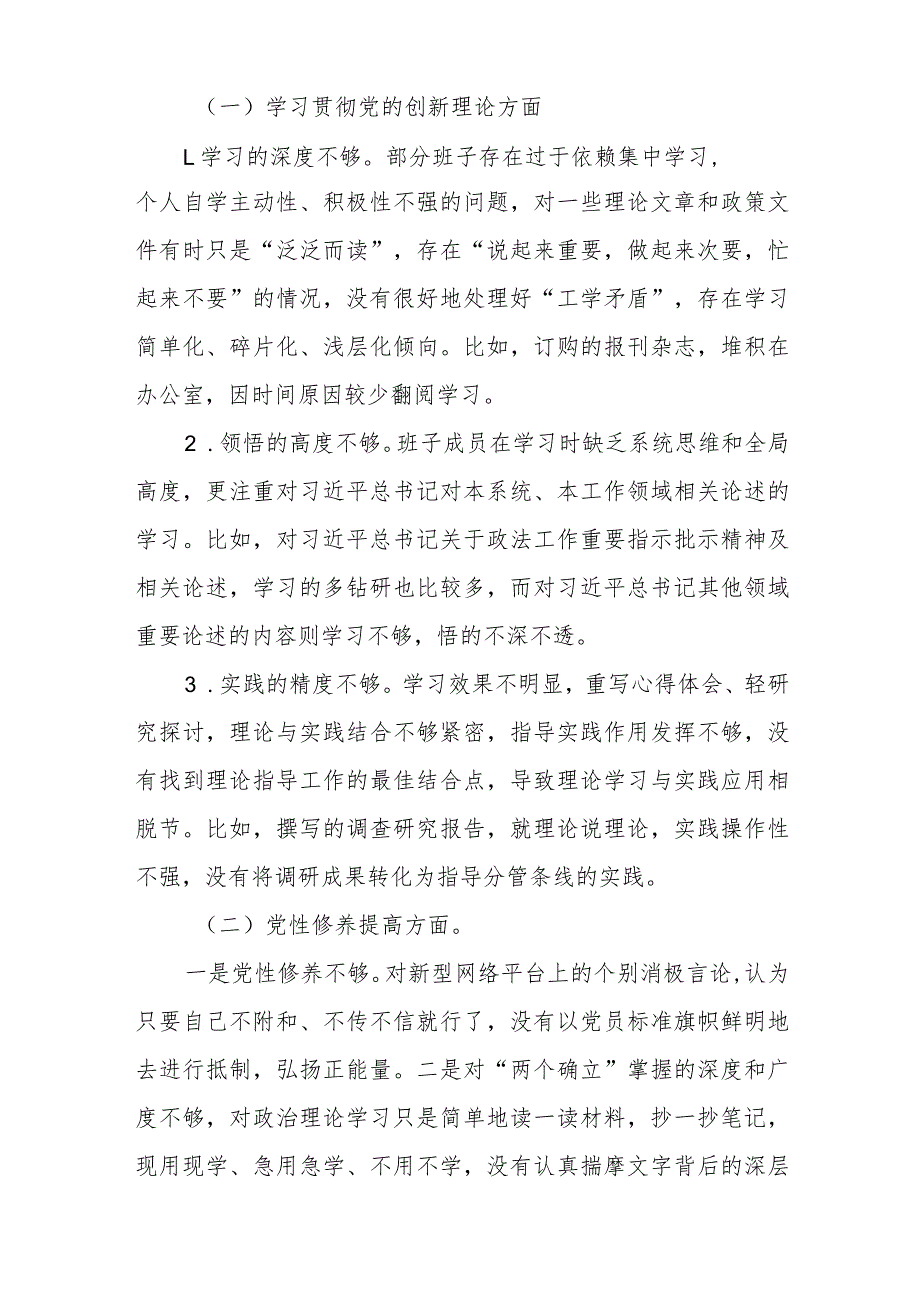 （一）学习贯彻党的创新理论方面
L学习的深度不够。部分班子存在过于依赖集中学习,
个人自学主动性、积极性不强的问题，对一些理论文章和政策文
件有时只是“泛泛而读”，存在“说起来重要，做起来次要，忙
起来不要”的情况，没有很好地处理好“工学矛盾”，存在学习
简单化、碎片化、浅层化倾向。比如，订购的报刊杂志，堆积在
办公室，因时间原因较少翻阅学习。
2.领悟的高度不够。班子成员在学习时缺乏系统思维和全局
高度，更注重对习近平总书记对本系统、本工作领域相关论述的
学习。比如，对习近平总书记关于政法工作重要指示批示精神及
相关论述，学习的多钻研也比较多，而对习近平总书记其他领域
重要论述的内容则学习不够，悟的不深不透。
3.实践的精度不够。学习效果不明显，重写心得体会、轻研
究探讨，理论与实践结合不够紧密，指导实践作用发挥不够，没
有找到理论指导工作的最佳结合点，导致理论学习与实践应用相
脱节。比如，撰写的调查研究报告，就理论说理论，实践操作性
不强，没有将调研成果转化为指导分管条线的实践。
（二）党性修养提高方面。
一是党性修养不够。对新型网络平台上的个别消极言论,认为
只要自己不附和、不传不信就行了，没有以党员标准旗帜鲜明地
去进行抵制，弘扬正能量。二是对“两个确立”掌握的深度和广
度不够，对政治理论学习只是简单地读一读材料，抄一抄笔记，
现用现学、急用急学、不用不学，没有认真揣摩文字背后的深层